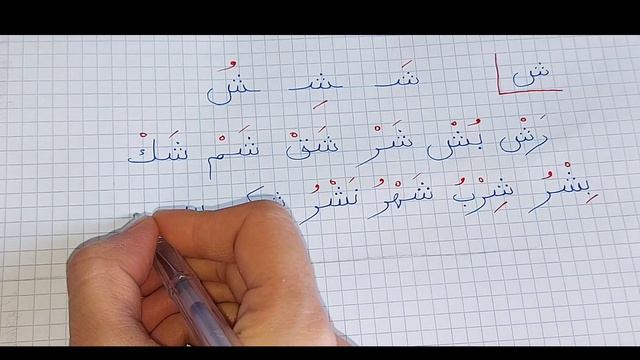 ش شَـ ـشِـ ـشُ
رَشْ بُشْ شَرْ شَقْ شَمْ شَكْ
بِشْرُ شِرْبُ شَهْرُ نَشْرُ